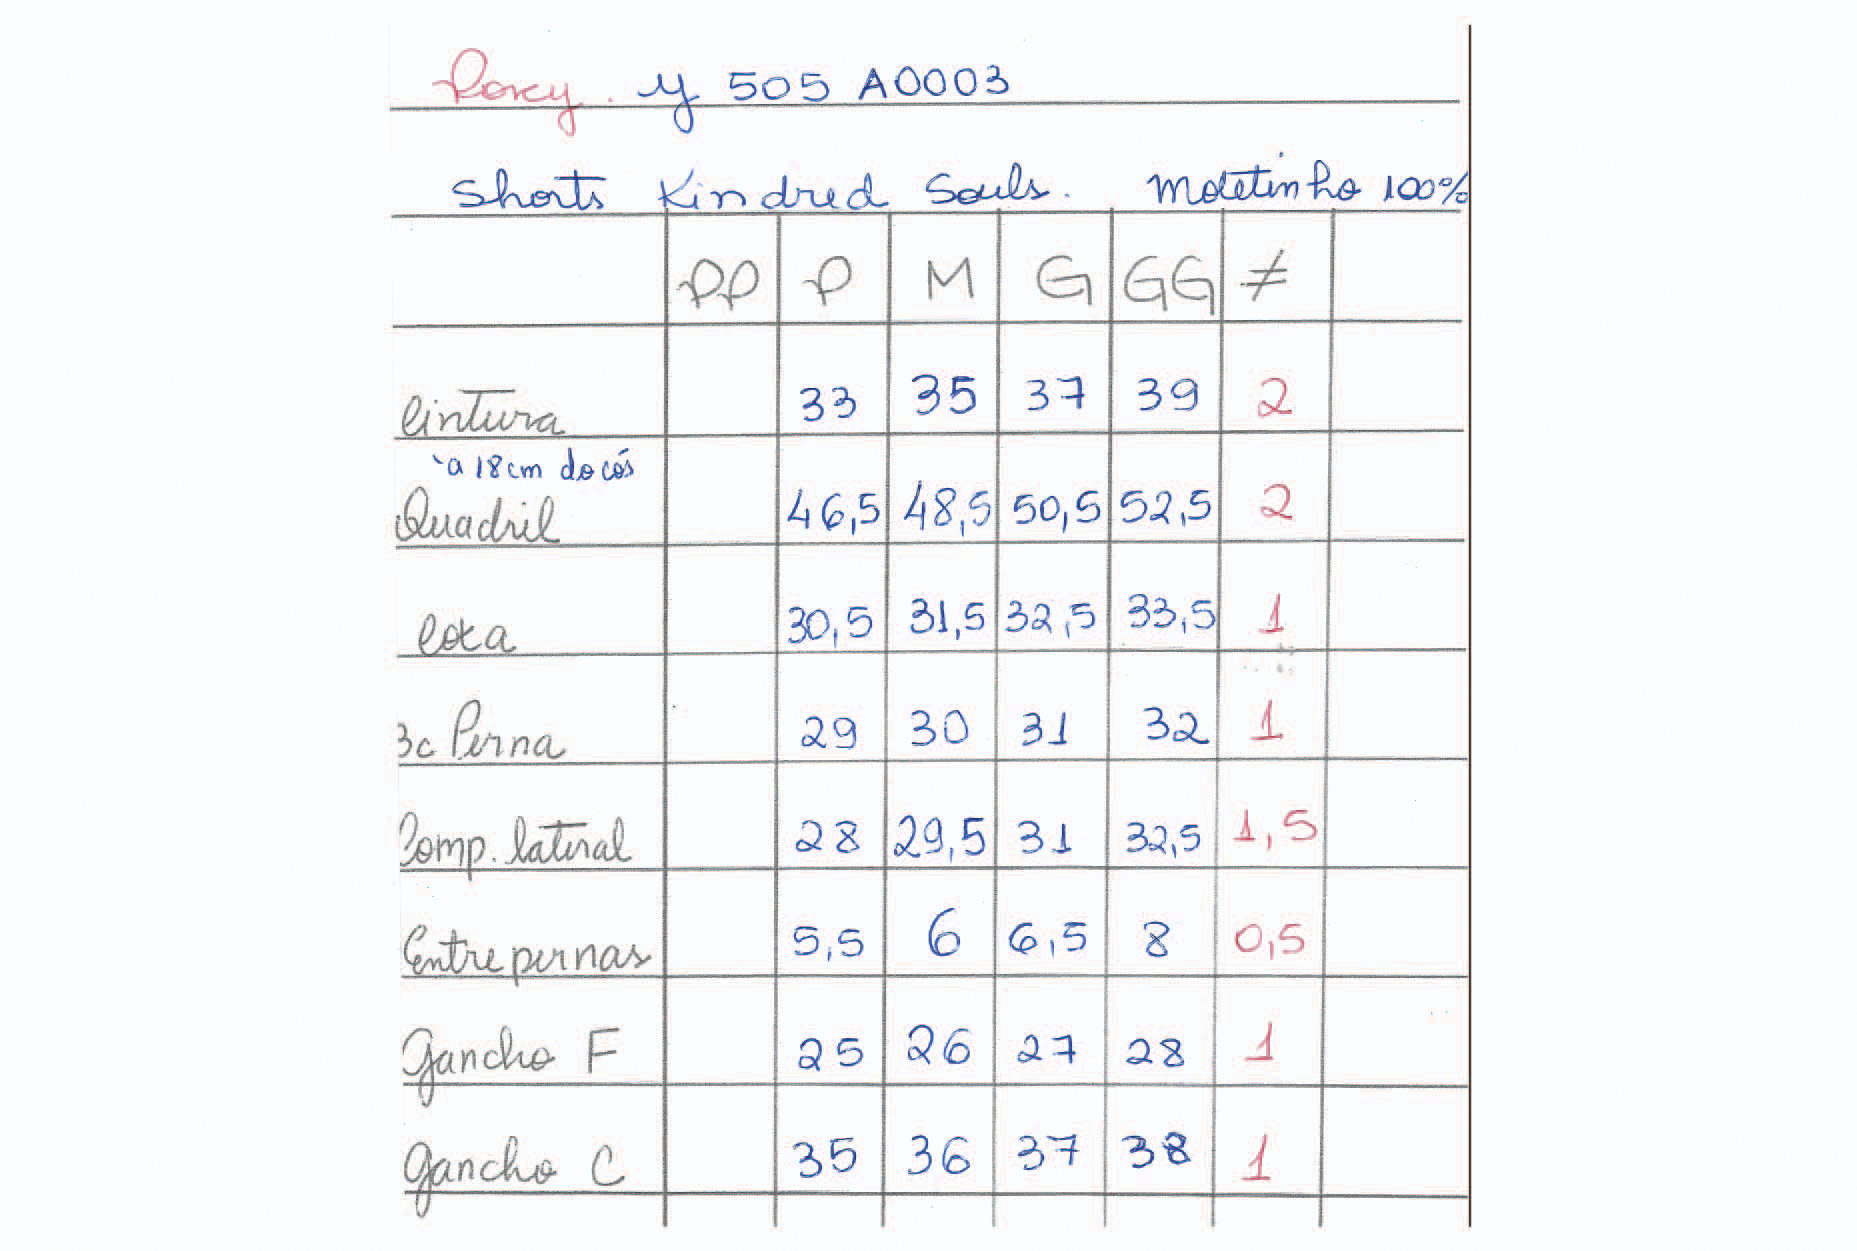 Roxy. Y 505 A0003
Shorts Kindred Souls. Moletinho 100%
PP P M G GG ≠
Cintura 33 35 37 39 2
à 18cm do cós
Quadril 46,5 48,5 50,5 52,5 2
Coxa 30,5 31,5 32,5 33,5 1
Bc Perna 29 30 31 32 1
Comp. lateral 28 29,5 31 32,5 1,5
Entre pernas 5,5 6 6,5 8 0,5
Gancho F 25 26 27 28 1
Gancho C 35 36 37 38 1